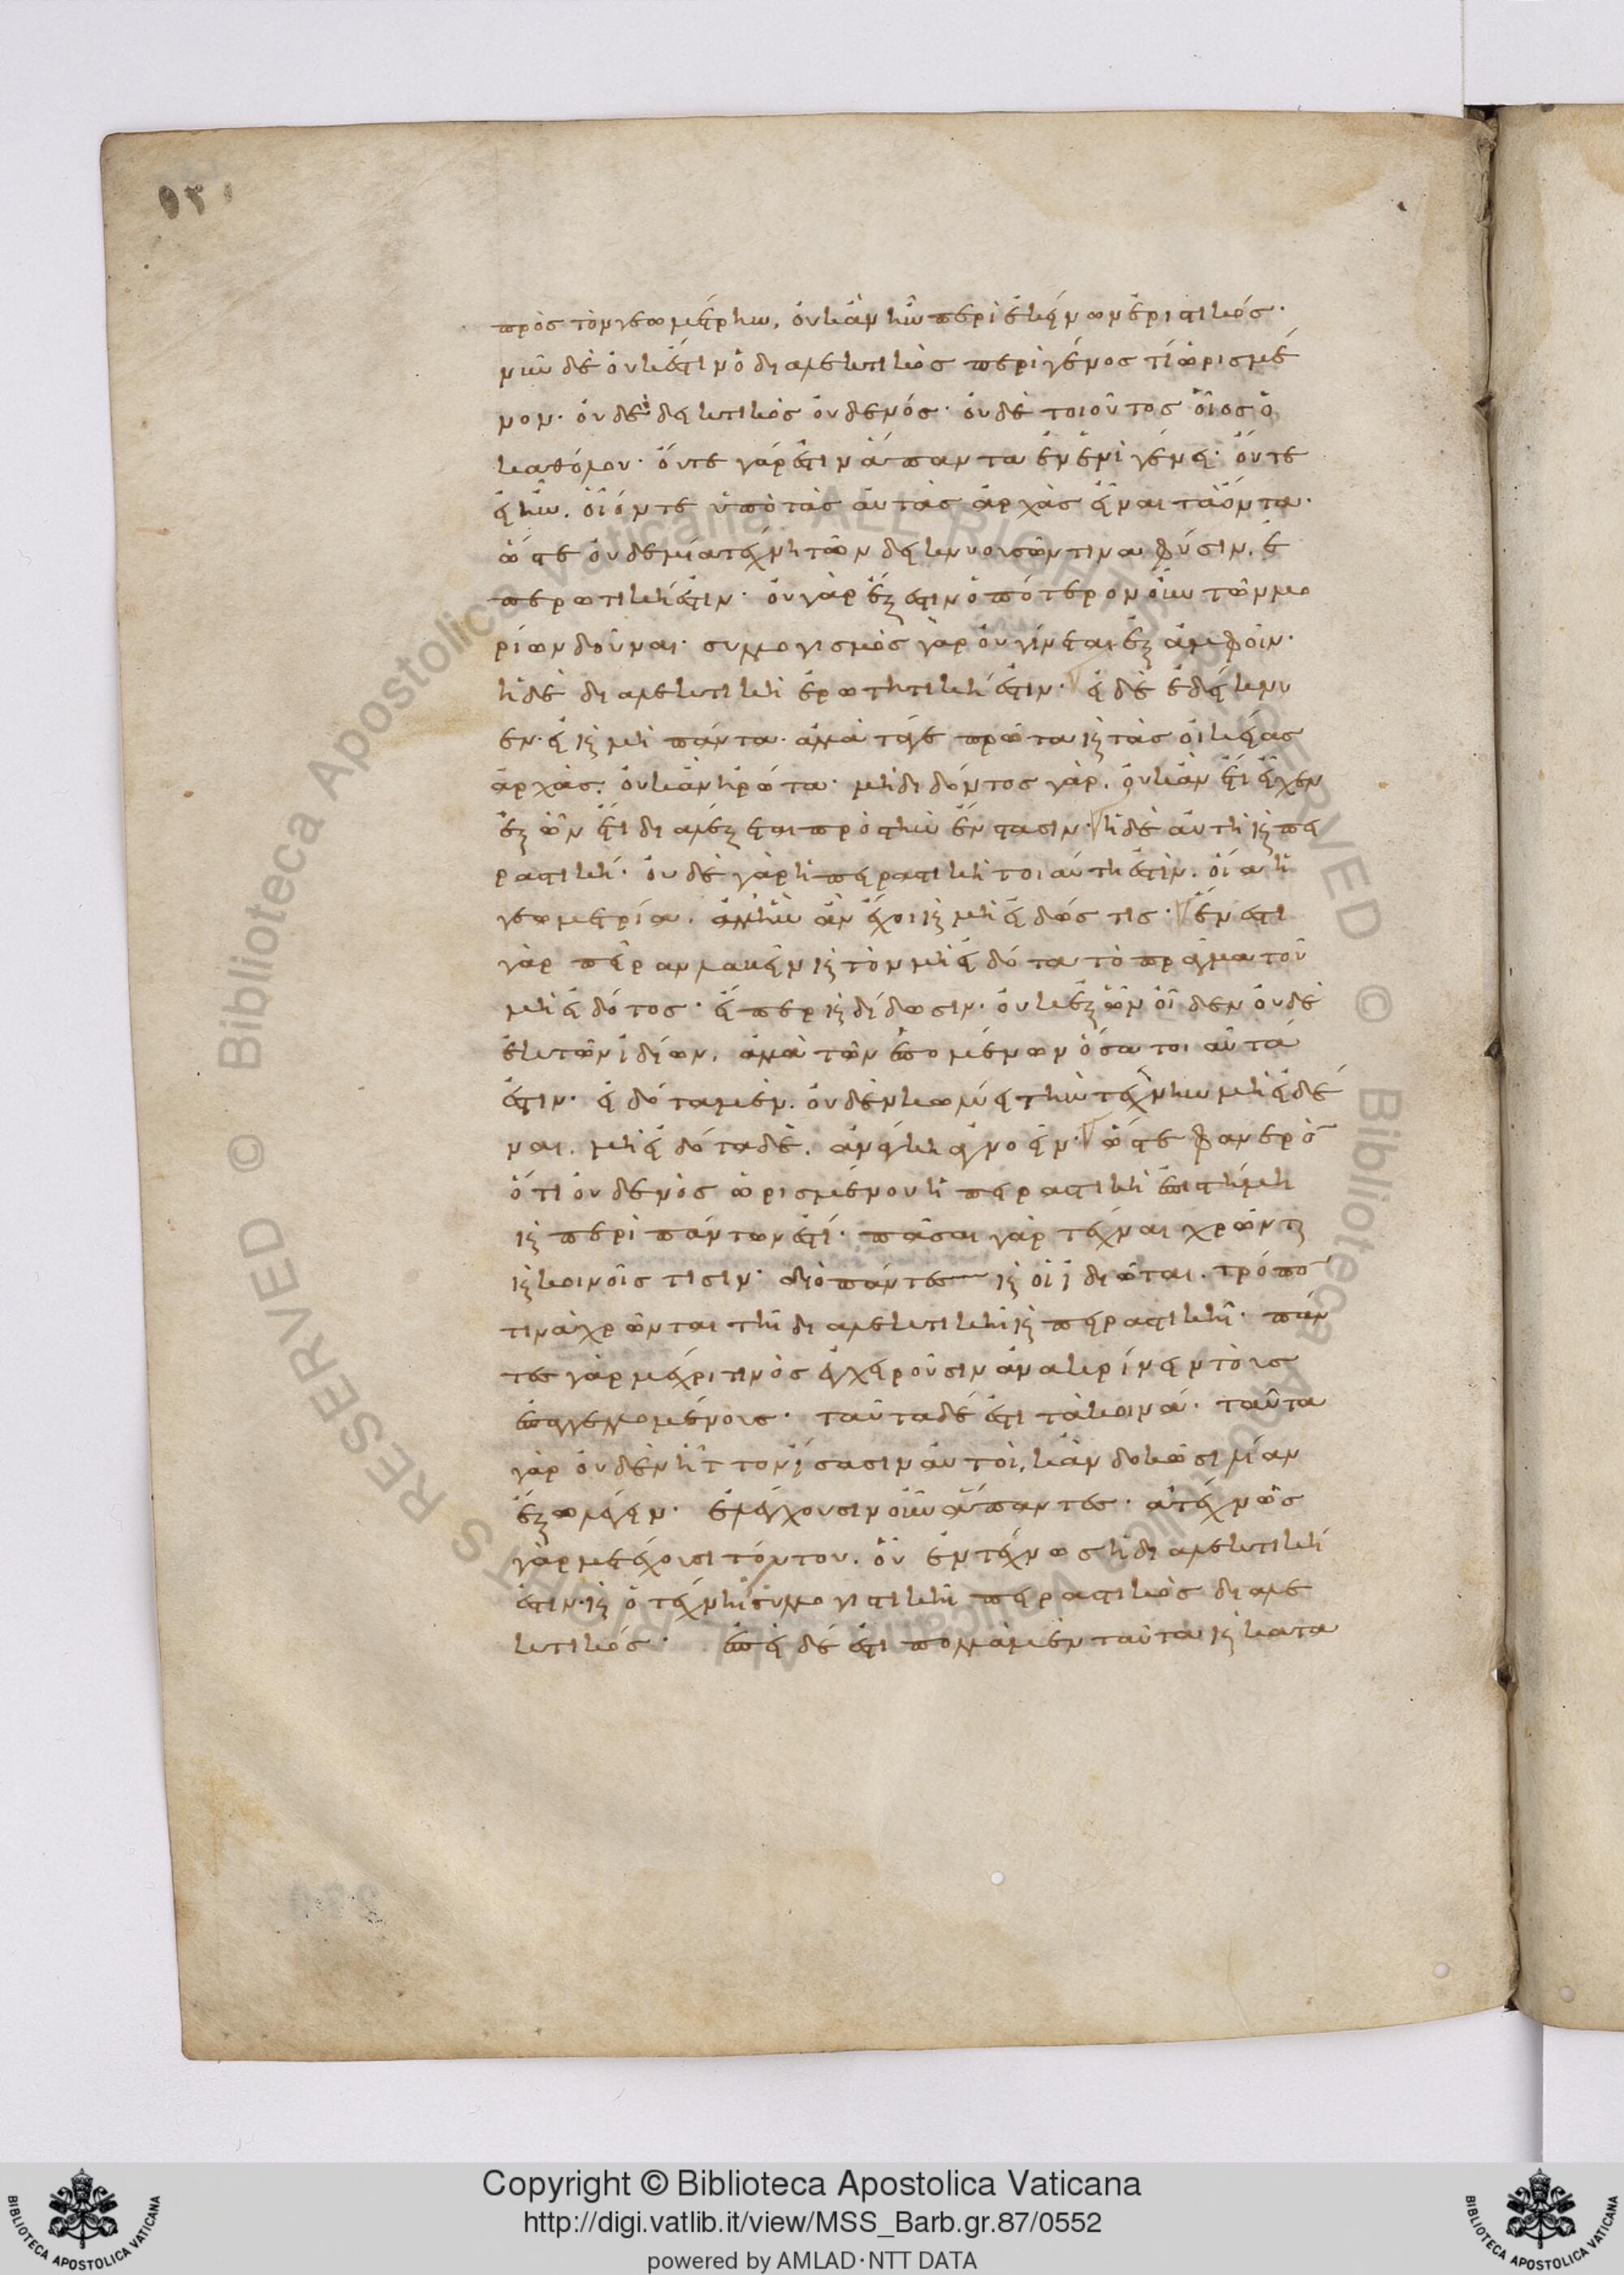 πρὸς τὸν γεωμέτρην, οὐκ ἂν ἦν περὶ ἐκείνων ἐριστικός·
νῦν δὲ οὐκ ἔστιν ὁ διαλεκτικὸς περὶ γένος τί ὡρισμέ
νον· οὐδὲ δεικτικὸς οὐδενός· οὐδὲ τοιοῦτος οἷος ὁ
καθόλου· οὔτε γάρ ἐστιν ἅπαντα ἐν ἑνὶ γένει· οὔτε
εἰ ἦν, οἷόν τε ὑπὸ τὰς αὐτὰς ἀρχὰς εἶναι τὰ ὄντα·
ὥστε οὐδεμία τέχνη τῶν δεικνυουσῶν τινα φύσιν, ἐ
ρωτητική ἐστιν· οὐ γὰρ ἔξεστιν ὁπότερον οὖν τῶν μο
ρίων δοῦναι· συλλογισμὸς γὰρ οὐ γίνεται ἐξ ἀμφοῖν·
ἡ δὲ διαλεκτικὴ ἐρωτητική ἐστιν· εἰ δὲ ἐδείκνυ
εν· εἰ καὶ μὴ πάντα· ἀλλὰ τάγε πρῶτα καὶ τὰς οἰκείας
ἀρχὰς, οὐκ ἂν ἠρώτα· μὴ διδόντος γὰρ, οὐκ ἂν ἔτι εἶχεν
ἐξ ὧν ἔτι διαλέξεται πρὸς τὴν ἔνστασιν· ἡ δὲ αὐτὴ καὶ πει
ραστική· οὐδὲ γὰρ ἡ πειραστικὴ τοιαύτη ἐστὶν, οἵα ἡ
γεωμετρία, ἀλλ' ἣν ἂν ἔχοι καὶ μὴ εἰδώς τις· ἔνεστι
γὰρ πεῖραν λαβεῖν καὶ τὸν μὴ εἰδότα τὸ πρᾶγμα τοῦ
μὴ εἰδότος· εἴπερ καὶ δίδωσιν· οὐκ ἐξ ὧν οἶδεν οὐδὲ
ἐκ τῶν ἰδίων, ἀλλὰ τῶν ἑπομένων ὅσα τοιαῦτά
ἐστιν· εἰδότα μὲν, οὐδὲν κωλύει τὴν τέχνην μὴ εἰδέ
ναι, μὴ εἰδότα δὲ, ἀνάγκη ἀγνοεῖν· ὥστε φανερὸν
ὅτι οὐδενὸς ὡρισμένου ἡ πειραστικὴ ἐπιστήμη
καὶ περὶ πάντων ἐστί· πᾶσαι γὰρ τέχναι χρῶνται
καὶ κοινοῖς τισιν· διὸ πάντες καὶ οἱ ἰδιῶται, τρόπον
τινὰ χρῶνται τῇ διαλεκτικῇ καὶ πειραστικῇ· πάν
τες γὰρ μέχρι τινὸς ἐγχειροῦσιν ἀνακρίνειν τοὺς
ἐπαγγελλομένους· ταῦτα δέ ἐστι τὰ κοινά· ταῦτα
γὰρ οὐδὲν ἧττον ἴσασιν αὐτοί, κἂν δοκῶσι λίαν
ἔξω λέγειν· ἐλέγχουσιν οὖν ἅπαντες· ἀτέχνως
γὰρ μετέχουσι τούτου, οὗ ἐντέχνως ἡ διαλεκτική
ἐστιν· καὶ ὁ τέχνῃ συλλογιστικῇ πειραστικὸς διαλε
κτικός· ἐπεὶ δέ ἐστι πολλὰ μὲν ταῦτα καὶ κατα